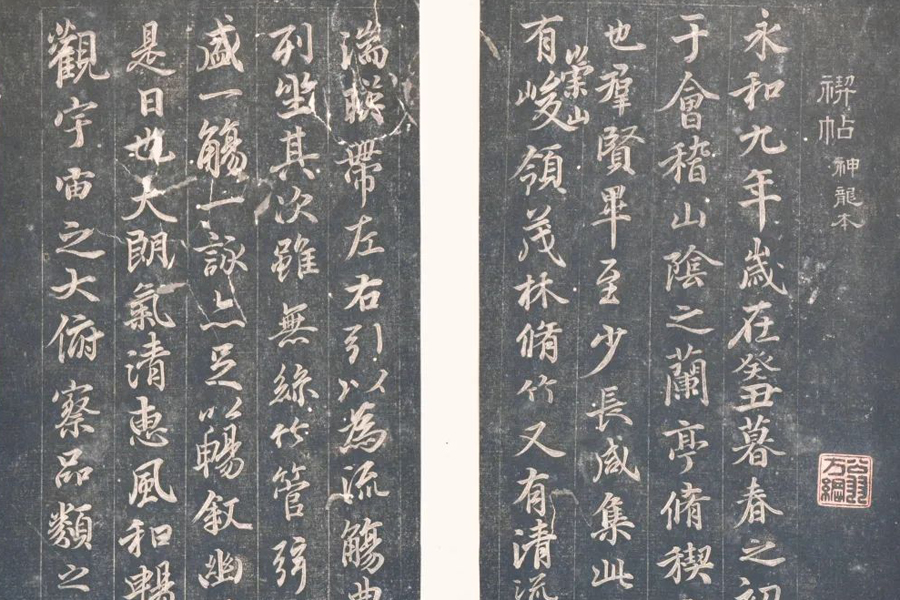 禊帖 神龍本
翁方綱
永和九年歲在癸丑暮春之初
于會稽山陰之蘭亭脩稧
也羣賢畢至少長咸集此
崇山
有峻領茂林脩竹又有清流
湍暎帶左右引以為流觴曲
列坐其次雖無絲竹管弦
盛一觴一詠亦足以暢敘幽
是日也天朗氣清惠風和暢
觀宇宙之大俯察品類之